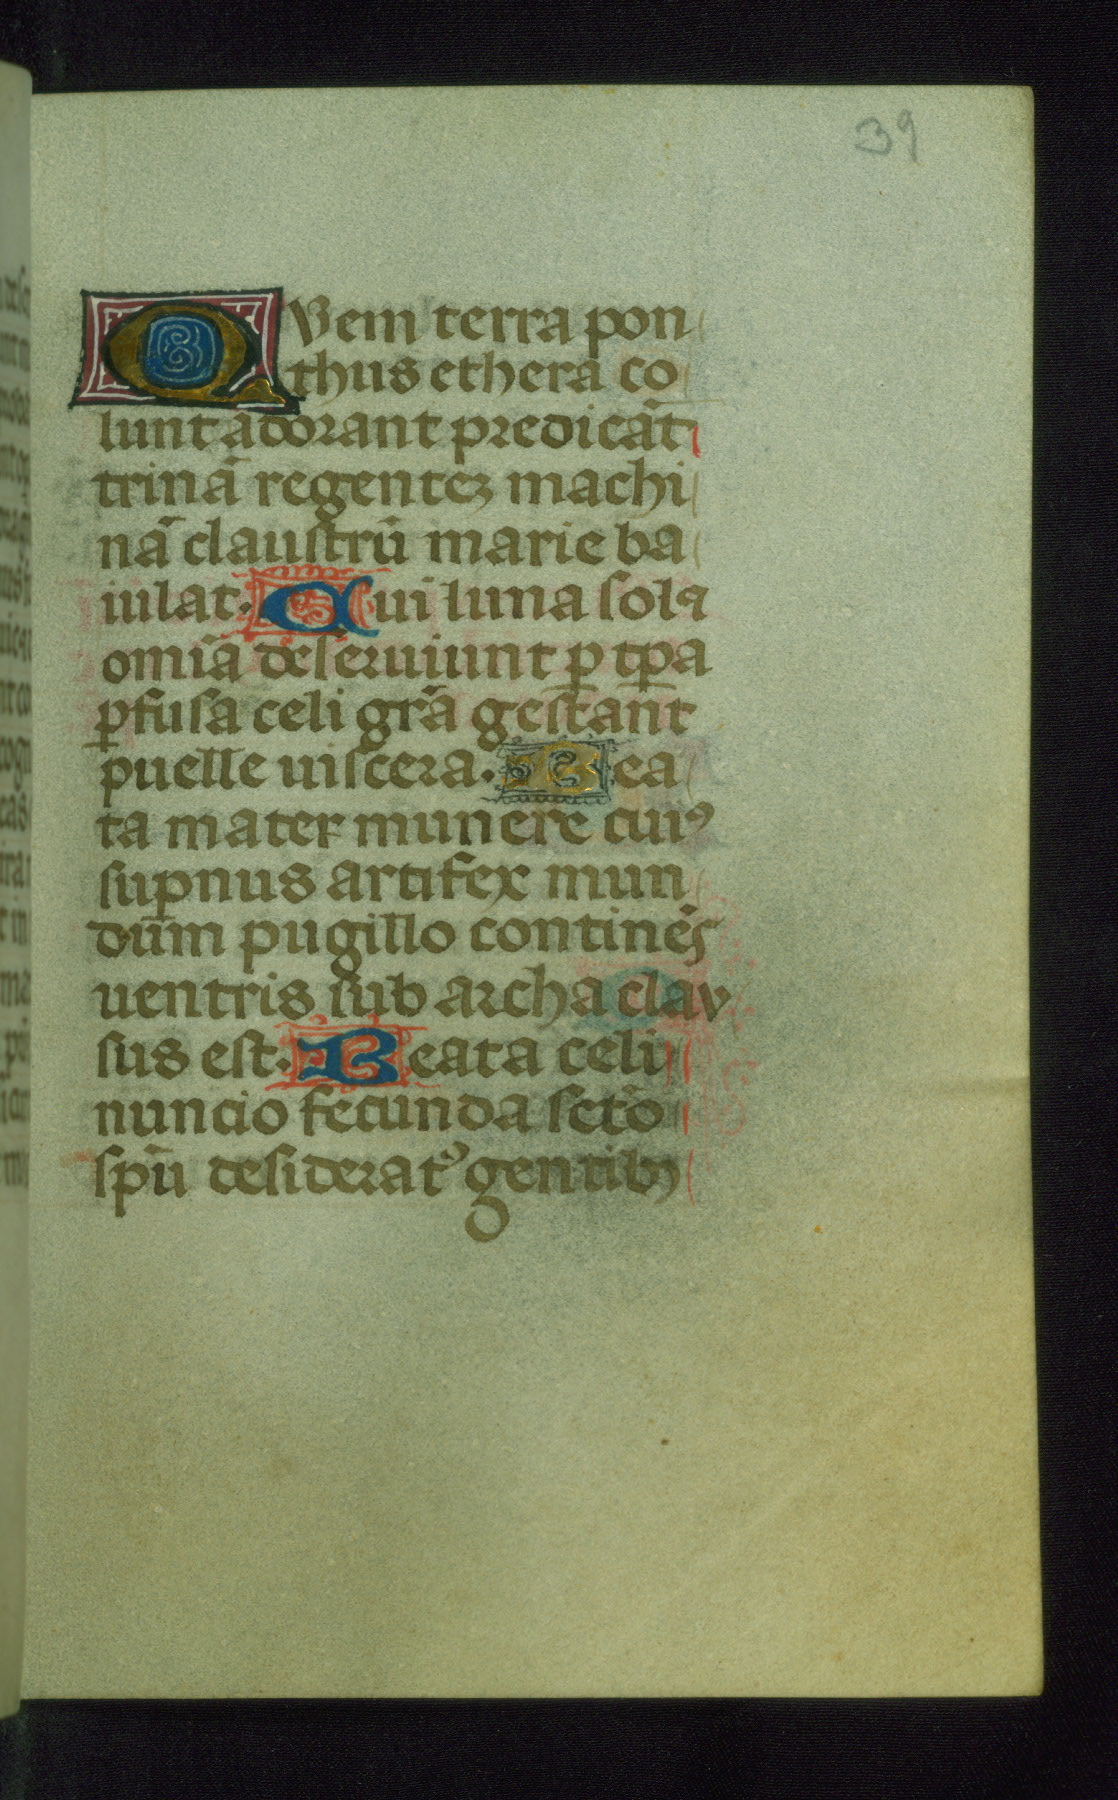 39
QVem terra pon
thus ethera co
lunt adorant predicãt
trinã regentez machi
nã claustrũ marie ba
iulat. Cui luna sol ⁊
omĩa deseruiunt ꝑ tꝑa
ꝑfusa celi grã gestant
puelle uiscera. Bea
ta mater munere cuiꝰ
suꝑnus artifex mun
dum pugillo continẽs
uentris sub archa clav
sus est. Beata celi
nuncio fecunda sctõ
spũ desideratꝰ gentibꝫ